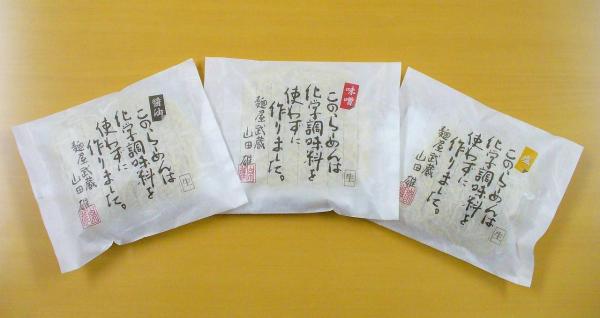 醤油
この、らーめんは
化学調味料を
使わずに
作りました。
麺屋武蔵
山田雄
生
味噌
この、らーめんは
化学調味料を
使わずに
作りました。
麺屋武蔵
山田雄
生
塩
この、らーめんは
化学調味料を
使わずに
作りました。
麺屋武蔵
山田雄
生